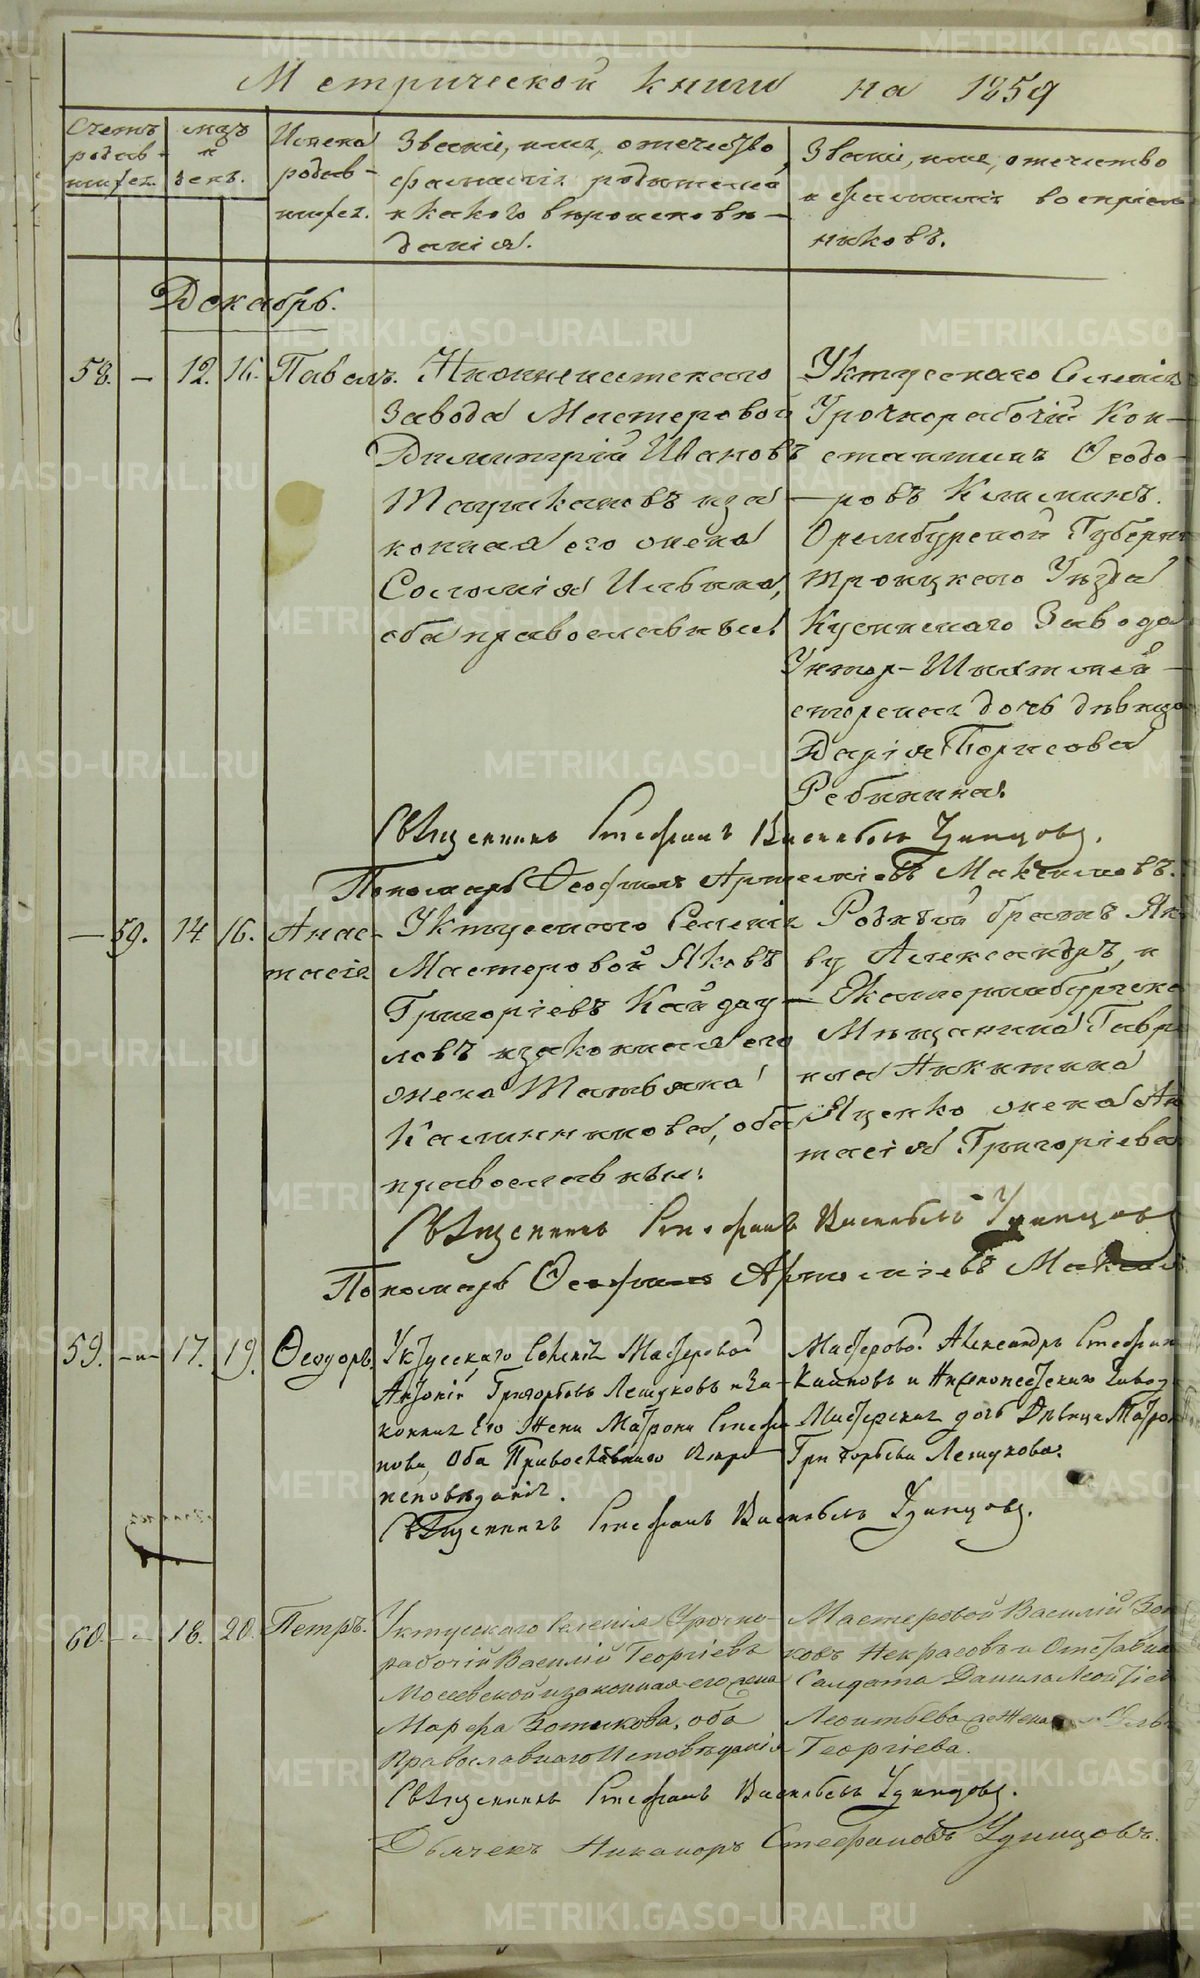 Метрической книги на 1859
Счетъ родив-шихся.
мѣц и день.
Имена родив-шихся.
Званіе, имя, отечество, фамилія родителей, и какого вѣроисповѣ-данія.
Званіе, имя, отечество и фамилія воспріем-никовъ.
Декабрь.
58. — 12. 16. Павелъ.
Нижнеисетскаго
завода Мастеровой
Димитрій Ивановъ
и за
конная его жена
Соломія Ильина,
оба православные.
Уктусскаго Селенія
Урочнорабочій Кон-
стантинъ Ѳеодо-
ровъ
Оренбургской Губерн
Троицкаго Уѣзда
Кусинскаго Завода
Унтер-Шихтмей-
стерская дочь дѣвица
Дарія Борисова
Рябинина.
Священникъ Стефанъ Васильевъ Удинцовъ.
Пономарь Ѳеофилъ Артеміевъ Максимовъ.
— 59. 14 16. Анас-
тасія
Уктусскаго Селенія
Мастеровой Яковъ
Григоріевъ Кайгау-
ловъ и законная его
жена Татьяна
Калинникова, оба
православные.
Родный братъ Як
ву Александръ, и
Екатеринбургска
Мѣщанина Гавр
ила Никитина
Яценко жена Ан
тасія Григоріева
Священникъ Стефанъ Васильевъ Удинцовъ
Пономарь Ѳеофилъ Артеміевъ Максим
59. -"- 17. 19. Ѳеодоръ.
Уктусскаго Селенія Мастеровой
Антоній Григорьевъ Лешуковъ и за-
конная Его Жена Матрона Стефа
нова, Оба Православнаго Вѣро
исповѣданія.
Мастеровой Александръ Стефан
и Нижнеисетскаго Завода
Мастерская дочь Дѣвица Матрон
Григорьева Лешукова.
Священникъ Стефанъ Васильевъ Удинцовъ.
60. - - 18. 20. Петръ.
Уктусскаго селенія Урочно-
рабочій Василій Георгіевъ
и законная его жена
Марфа Зотикова, оба
Православнаго Исповѣданія
Мастеровой Василій Зот
ковъ Некрасовъ и Отставна
Салдата Данила
Леонтьева жена
Георгіева.
Священникъ Стефанъ Васильевъ Удинцовъ.
Дьячекъ Никаноръ Стефановъ Удинцовъ.
METRIKI.GASO-URAL.RU